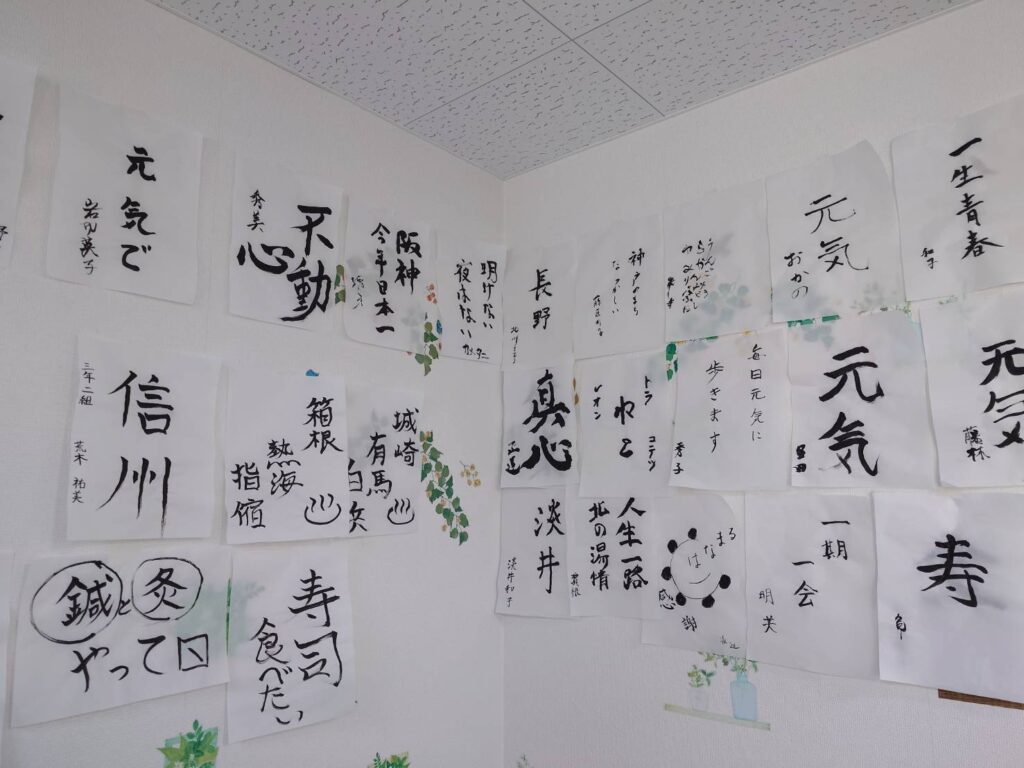 元気で
不動
心
秀美
阪神
今年日本一
明けない
夜はない
長野
神戸がまち
なつかしい
元気
おかの
一生青春
和子
三年二組
信州
荒木 裕美
箱根
熱海
指宿
城崎
有馬
白灸
真心
トラ
ねこ
レオン
コテツ
毎日元気に
歩きます
秀子
元気
元気
藤林
鍼と灸
やって口
寿司
食べたい
淡井
淡井和子
人生一路
北の湯情
はなまる
感謝
一期
一会
明美
寿